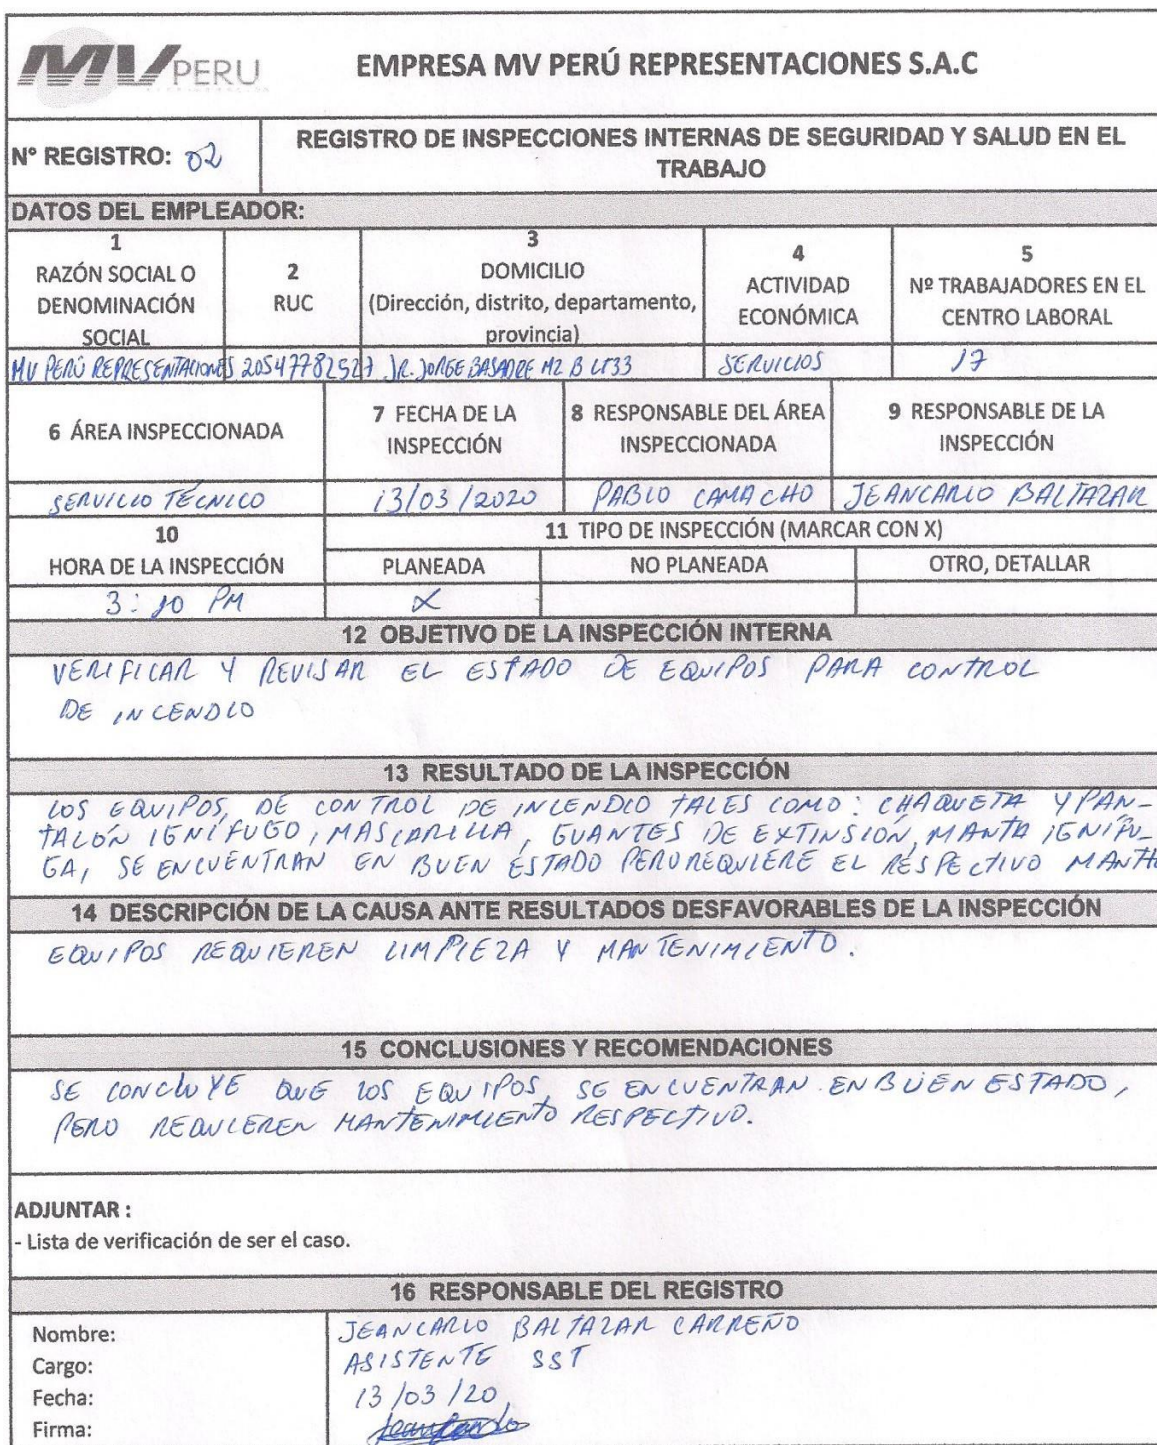 MV PERU
EMPRESA MV PERÚ REPRESENTACIONES S.A.C
N° REGISTRO: 02
REGISTRO DE INSPECCIONES INTERNAS DE SEGURIDAD Y SALUD EN EL
TRABAJO
DATOS DEL EMPLEADOR:
1
RAZÓN SOCIAL O
DENOMINACIÓN
SOCIAL
2
RUC
3
DOMICILIO
(Dirección, distrito, departamento,
provincia)
4
ACTIVIDAD
ECONÓMICA
5
Nº TRABAJADORES EN EL
CENTRO LABORAL
MV PERÚ REPRESENTACIONES
20547782527
JR. JORGE BASADRE MZ B LT33
SERVICIOS
17
6 ÁREA INSPECCIONADA
7 FECHA DE LA
INSPECCIÓN
8 RESPONSABLE DEL ÁREA
INSPECCIONADA
9 RESPONSABLE DE LA
INSPECCIÓN
SERVICIO TÉCNICO
13/03/2020
PABLO CAMACHO
JEANCARLO BALTAZAR
10
HORA DE LA INSPECCIÓN
11 TIPO DE INSPECCIÓN (MARCAR CON X)
PLANEADA
NO PLANEADA
OTRO, DETALLAR
3: PM
X
12 OBJETIVO DE LA INSPECCIÓN INTERNA
VERIFICAR Y REVISAR EL ESTADO DE EQUIPOS PARA CONTROL
DE INCENDIO
13 RESULTADO DE LA INSPECCIÓN
LOS EQUIPOS, DE CONTROL DE INCENDIO TALES COMO: CHAQUETA Y PAN-
TALÓN IGNÍFUGO, MASCARILLA, GUANTES DE EXTINSIÓN, MANTA IGNÍFU-
GA, SE ENCUENTRAN EN BUEN ESTADO PERO REQUIERE EL RESPECTIVO MANTTO
14 DESCRIPCIÓN DE LA CAUSA ANTE RESULTADOS DESFAVORABLES DE LA INSPECCIÓN
EQUIPOS REQUIEREN LIMPIEZA Y MANTENIMIENTO.
15 CONCLUSIONES Y RECOMENDACIONES
SE CONCLUYE QUE LOS EQUIPOS, SE ENCUENTRAN EN BUEN ESTADO,
PERO REQUIEREN MANTENIMIENTO RESPECTIVO.
ADJUNTAR :
- Lista de verificación de ser el caso.
16 RESPONSABLE DEL REGISTRO
Nombre: JEANCARLO BALTAZAR CARREÑO
Cargo: ASISTENTE SST
Fecha: 13/03/20
Firma: